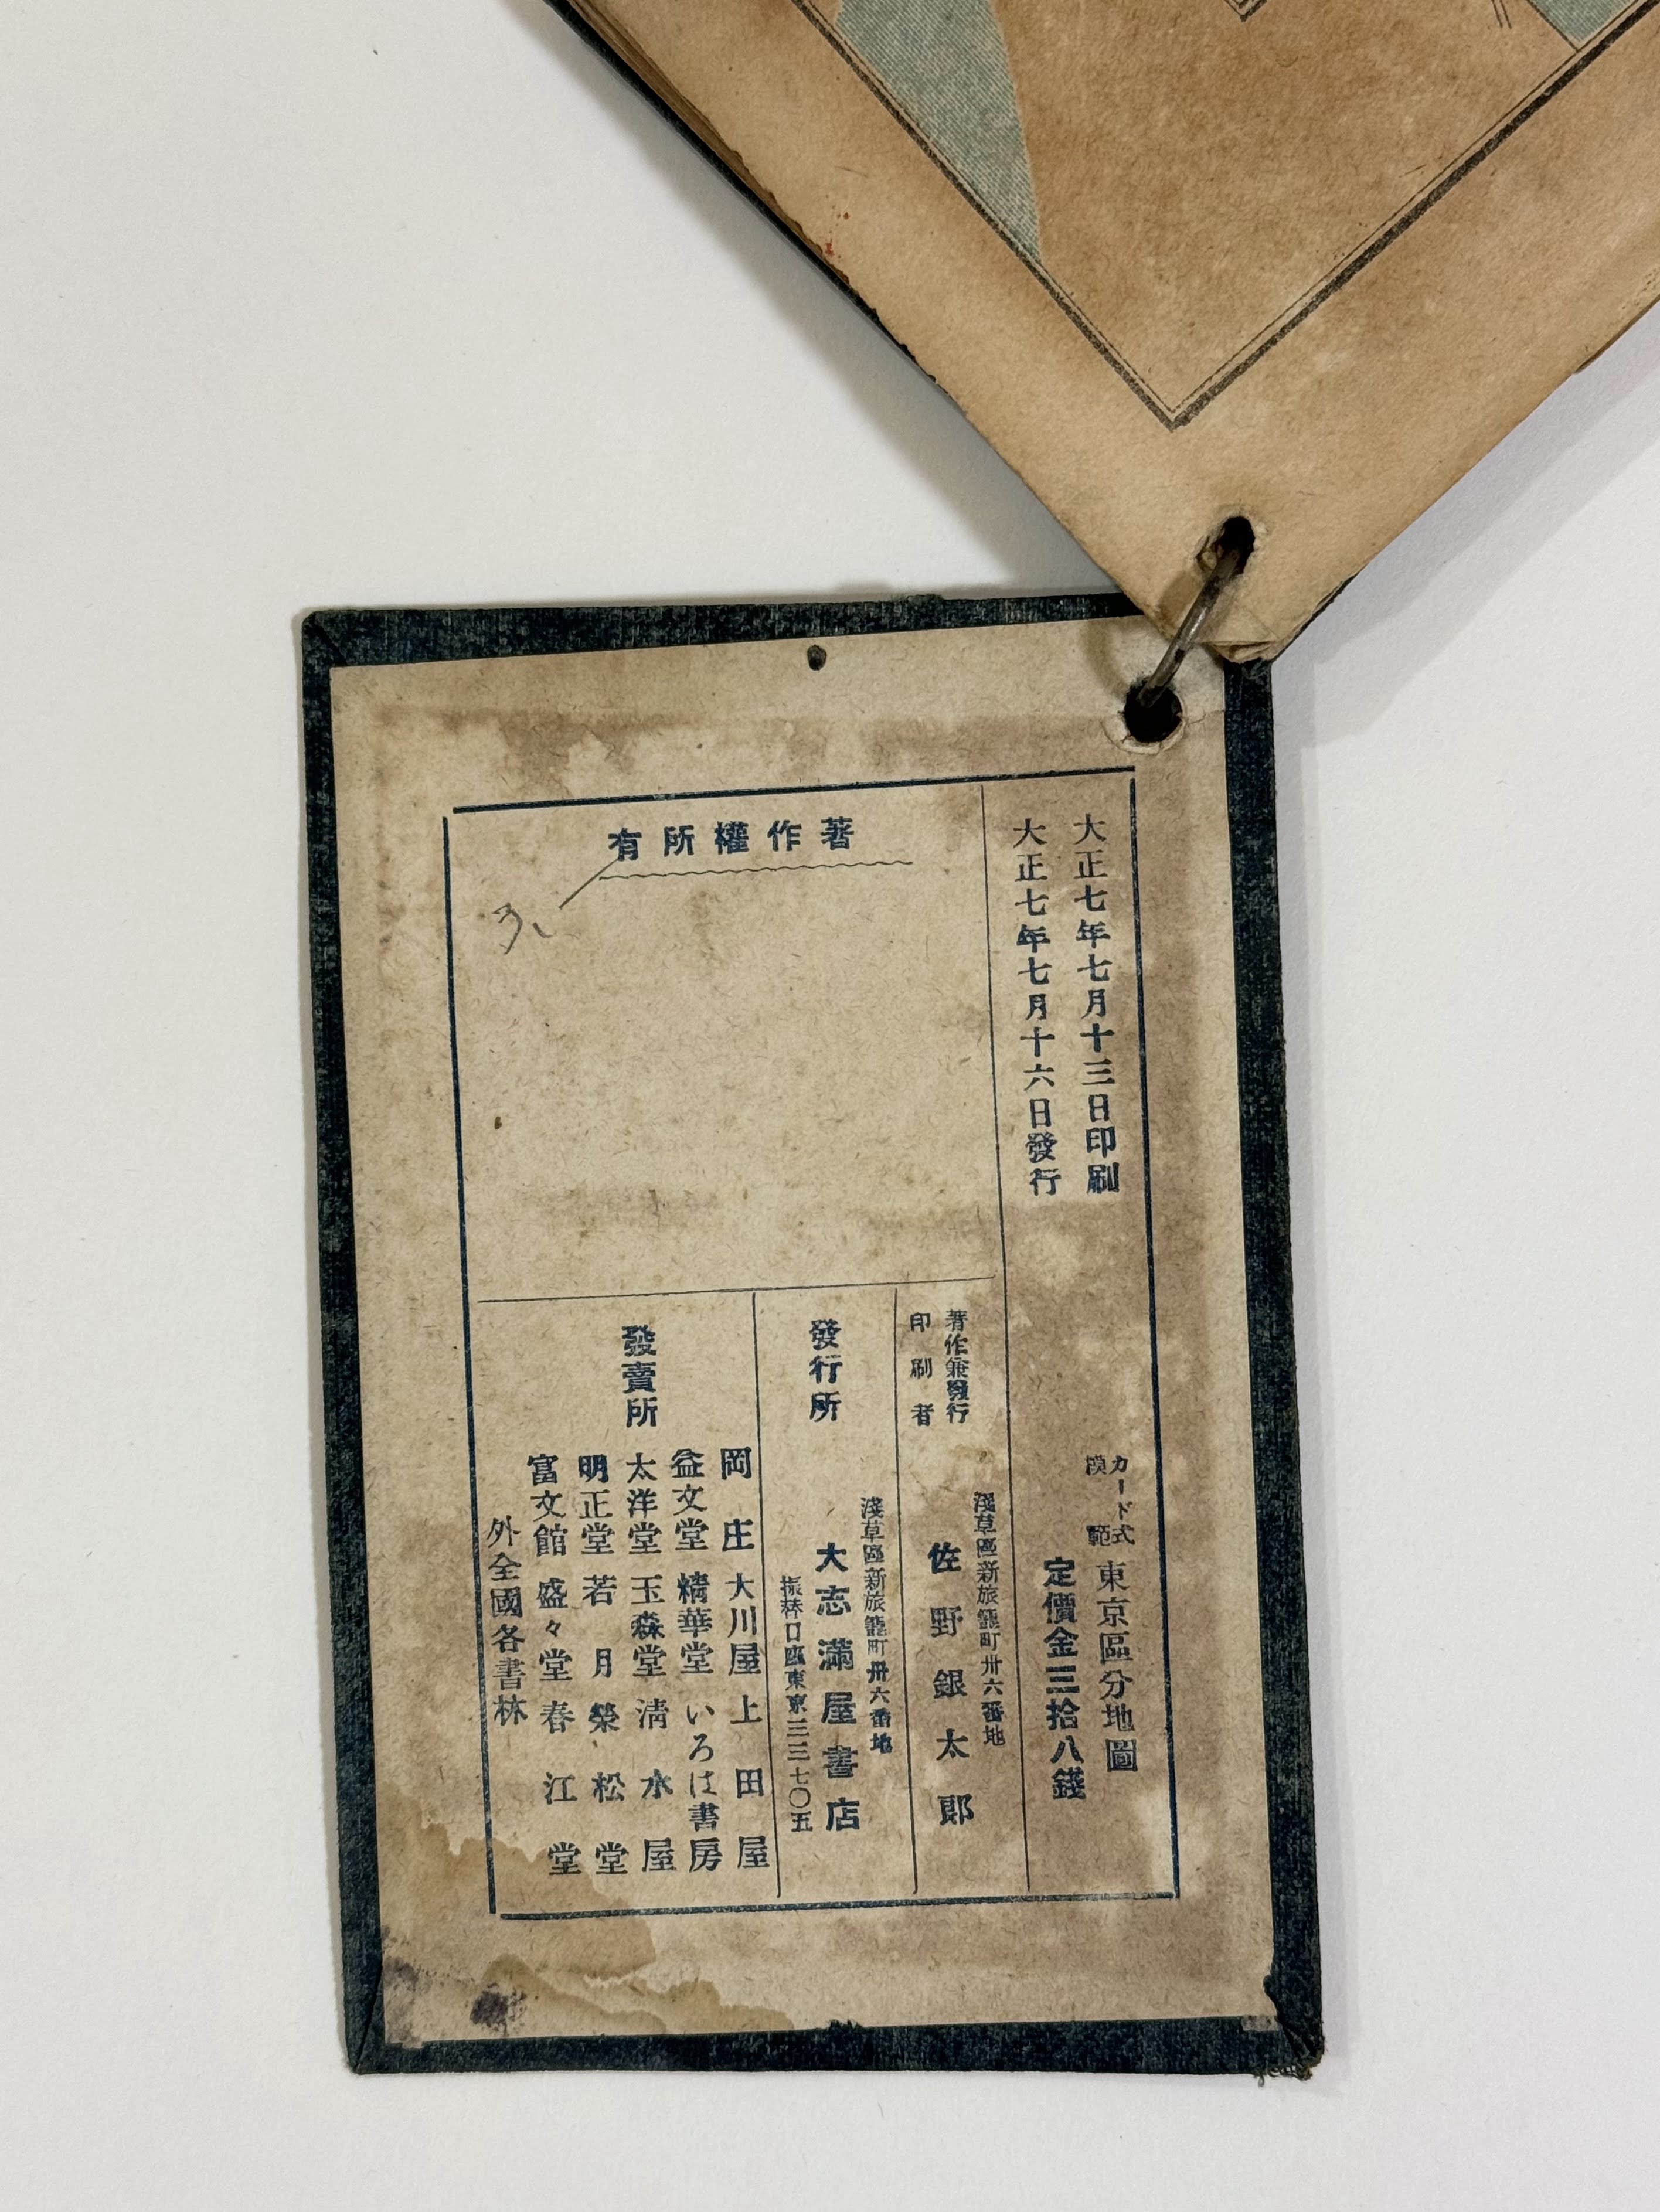 大正七年七月十三日印刷
大正七年七月十六日發行
カード式
模範
東京區分地圖
定價金三拾八錢
著作權所有
著作兼發行
印刷者
淺草區新旅籠町卅六番地
佐野銀太郎
發行所
淺草區新旅籠町卅六番地
大志滿屋書店
振替口座東京三三七〇五
發賣所
岡庄 大川屋 上田屋
益文堂 精華堂 いろは書房
太洋堂 玉森堂 淸水屋
明正堂 若月 榮松堂
富文館 盛々堂 春江堂
外全國各書林